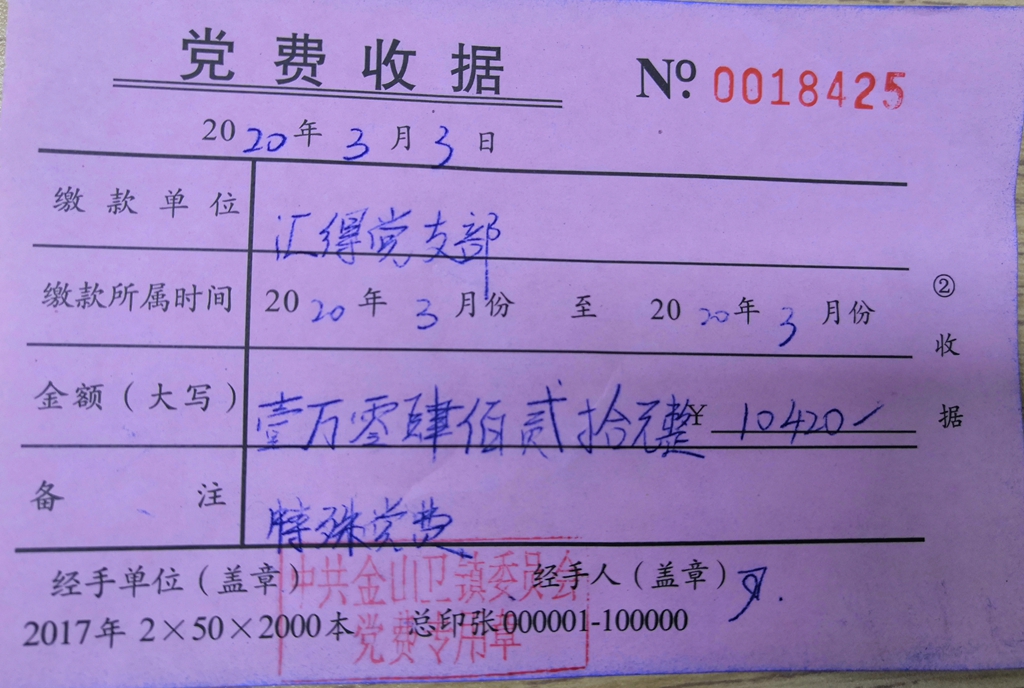 党费收据 Nº 0018425
2020年3月3日
缴款单位 汇得党支部
缴款所属时间 2020年3月份 至 2020年3月份
金额（大写） 壹万零肆佰贰拾元整 ¥ 10420-
备注 特殊党费
②收据
经手单位（盖章） 经手人（盖章）
中共金山卫镇委员会
党费专用章
2017年 2×50×2000本 总印张000001-100000